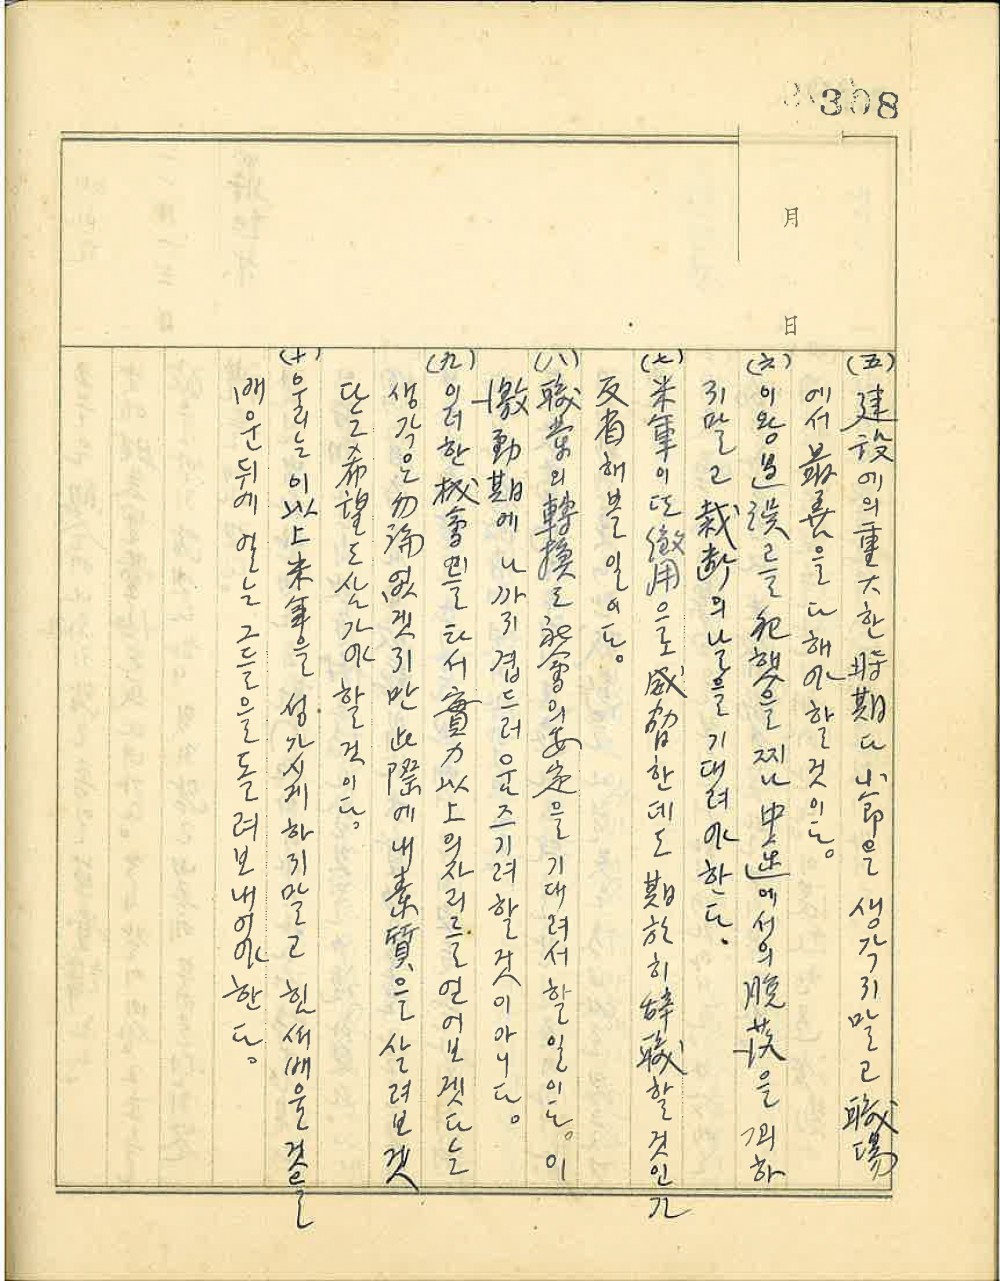 308
月
日
(五) 建設에의 重大한 時期다 小節을 생각지말고 職場
에서 最善을 다해야할것이다。
(六) 이왕 過誤를 犯햇을찌나 中途에서의 脫落을 꾀하
지말고 裁斷의 날을 기대려야한다.
(七) 米軍이 또 徵用으로 威脅한데도 期於히 辞職할것인가
反省해볼일이다。
(八) 職業의 轉換도 社會의 安定을 기대려서 할일이다。 이
激動期에 나까지 겹드러 움즈기려할것이아니다。
(九) 이러한 機會를 타서 實力以上의 자리를 언어보겟다는
생각은 勿論 없겟지만 此際에 내 素質을 살려보겟
단 希望도 삼가야할것이다。
(十) 우리는 이以上 米軍을 성가시게하지말고 힘써배울것을
배운뒤에 얼는 그들을 돌려보내어야한다。